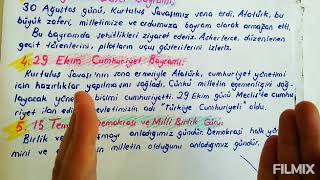 30 Ağustos günü, Kurtuluş Savaşımız sona erdi. Atatürk, bu
büyük zaferi, milletimize ve ordumuza bayram olarak armağan etti.
Bu bayramda şehitlikleri ziyaret ederiz. Askerlerce, düzenlenen
geçit törenlerini, pilotların uçuş gösterilerini izleriz.
4. 29 Ekim Cumhuriyet Bayramı:
Kurtuluş Savaşı'nın sona ermesiyle Atatürk, cumhuriyet yönetimi
için hazırlıklar yapılmasını sağladı. Çünkü milletin egemenliğini
yönetim biçimi cumhuriyetti. 29 Ekim günü Meclis'te
ilan adı "Türkiye Cumhuriyeti" oldu.
5. 15 Demokrasi ve Milli Birlik Günü:
Birlik anladığımız gündür. Demokrasi halk
mini ve milletin olduğunu anladığımız gündür.
FILMIX